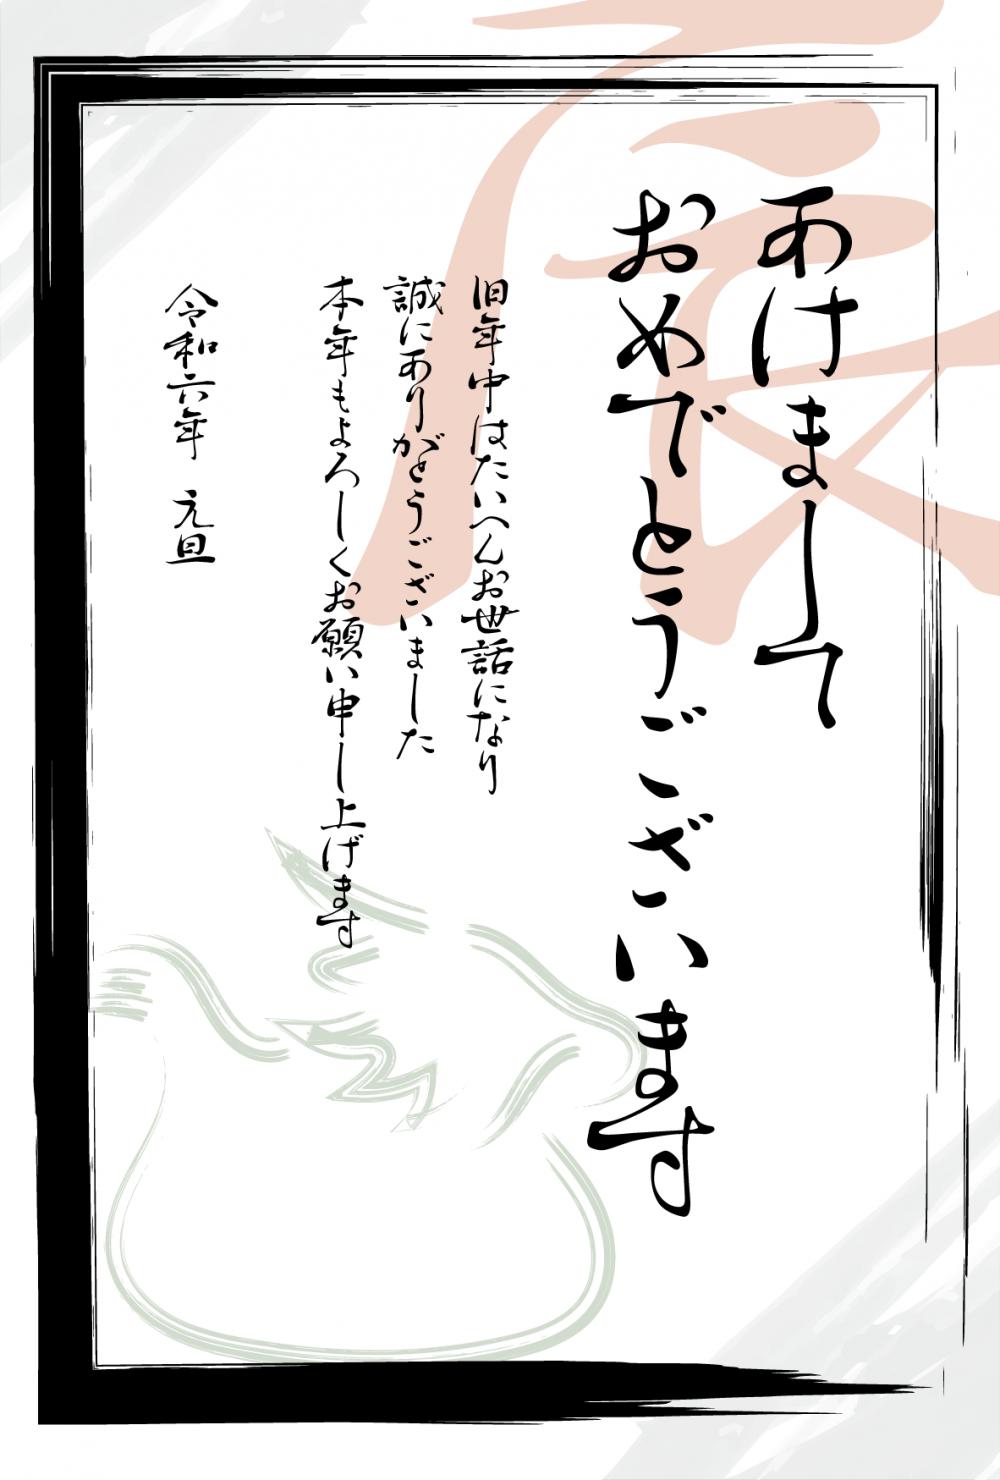 辰
あけまして
おめでとうございます
旧年中はたいへんお世話になり
誠にありがとうございました
本年もよろしくお願い申し上げます
令和六年 元旦